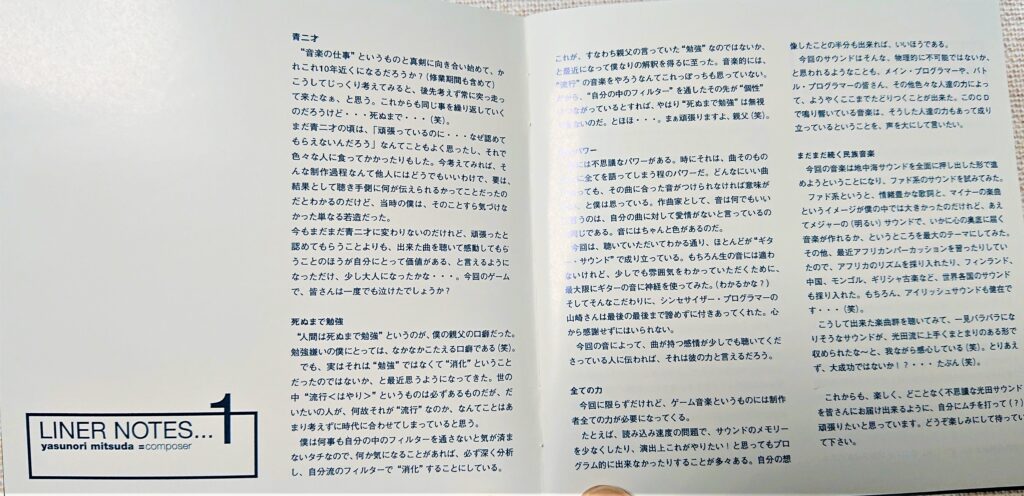 青二才
“音楽の仕事”というものと真剣に向き合い始めて、か
れこれ10年近くになるだろうか？(修業期間も含めて)
こうしてじっくり考えてみると、後先考えず常に突っ走っ
て来たなぁ、と思う。これからも同じ事を繰り返していく
のだろうけど・・・死ぬまで・・・(笑)。
まだ青二才の頃は、「頑張っているのに・・・なぜ認めて
もらえないんだろう」なんてこともよく思ったし、それで
色々な人に食ってかかったりもした。今考えてみれば、そ
んな制作過程なんて他人にはどうでもいいわけで、要は、
結果として聴き手側に何が伝えられるかってことだったの
だとわかるのだけど、当時の僕は、そのことすら気づけな
かった単なる若造だった。
今もまだまだ青二才に変わりないのだけれど、頑張ったと
認めてもらうことよりも、出来た曲を聴いて感動してもら
うことのほうが自分にとって価値がある、と言えるように
なっただけ、少し大人になったかな・・・。今回のゲーム
で、皆さんは一度でも泣けたでしょうか？
死ぬまで勉強
“人間は死ぬまで勉強”というのが、僕の親父の口癖だった。
勉強嫌いの僕にとっては、なかなかこたえる口癖である(笑)。
でも、実はそれは“勉強”ではなくて“消化”ということ
だったのではないか、と最近思うようになってきた。世の
中“流行<はやり>”というものは必ずあるものだが、だ
いたいの人が、何故それが“流行”なのか、なんてことはあ
まり考えずに時代に合わせてしまっていると思う。
僕は何事も自分の中のフィルターを通さないと気が済ま
ないタチなので、何か気になることがあれば、必ず深く分析
し、自分流のフィルターで“消化”することにしている。
LINER NOTES... 1
yasunori mitsuda =composer
これが、すなわち親父の言っていた“勉強”なのではないか、
と最近になって僕なりの解釈を得るに至った。音楽的には、
“流行”の音楽をやろうなんてこれっぽっちも思っていない。
だから、“自分の中のフィルター”を通したその先が“個性”
につながっているとすれば、やはり“死ぬまで勉強”は無視
できないのだ。とほほ・・・。まぁ頑張りますよ、親父(笑)。
パワー
には不思議なパワーがある。時にそれは、曲そのもの
に全てを語ってしまう程のパワーだ。どんなにいい曲
っても、その曲に合った音がつけられなければ意味が
、と僕は思っている。作曲家として、音は何でもいい
うのは、自分の曲に対して愛情がないと言っているの
同じである。音にはちゃんと色があるのだ。
今回は、聴いていただいてわかる通り、ほとんどが“ギタ
ー・サウンド”で成り立っている。もちろん生の音には適わ
ないけれど、少しでも雰囲気をわかっていただくために、
最大限にギターの音に神経を使ってみた。(わかるかな？)
そしてそんなこだわりに、シンセサイザー・プログラマーの
山崎さんは最後の最後まで諦めずに付きあってくれた。心
から感謝せずにはいられない。
今回の音によって、曲が持つ感情が少しでも聴いてくだ
さっている人に伝われば、それは彼の力と言えるだろう。
全ての力
今回に限らずだけれど、ゲーム音楽というものには制作
者全ての力が必要になってくる。
たとえば、読み込み速度の問題で、サウンドのメモリー
を少なくしたり、演出上これがやりたい！と思ってもプロ
グラム的に出来なかったりすることが多々ある。自分の想
像したことの半分も出来れば、いいほうである。
今回のサウンドはそんな、物理的に不可能ではないか、
と思われるようなことも、メイン・プログラマーや、バト
ル・プログラマーの皆さん、その他色々な人達の力によっ
て、ようやくここまでたどりつくことが出来た。このＣＤ
で鳴り響いている音楽は、そうした人達の力もあって成り
立っているということを、声を大にして言いたい。
まだまだ続く民族音楽
今回の音楽は地中海サウンドを全面に押し出した形で進
めようということになり、ファド系のサウンドを試みてみた。
ファド系というと、情緒豊かな歌詞と、マイナーの楽曲
というイメージが僕の中では大きかったのだけれど、あえ
てメジャーの(明るい)サウンドで、いかに心の奥底に届く
音楽が作れるか、というところを最大のテーマにしてみた。
その他、最近アフリカンパーカッションを習ったりしてい
たので、アフリカのリズムを採り入れたり、フィンランド、
中国、モンゴル、ギリシャ古楽など、世界各国のサウンド
も採り入れた。もちろん、アイリッシュサウンドも健在で
す・・・(笑)。
こうして出来た楽曲群を聴いてみて、一見バラバラにな
りそうなサウンドが、光田流に上手くまとまりのある形で
収められたな〜と、我ながら感心している(笑)。とりあえ
ず、大成功ではないか！？・・・たぶん(笑)。
これからも、楽しく、どことなく不思議な光田サウンド
を皆さんにお届け出来るように、自分にムチを打って(？)
頑張りたいと思っています。どうぞ楽しみにして待ってい
て下さい。